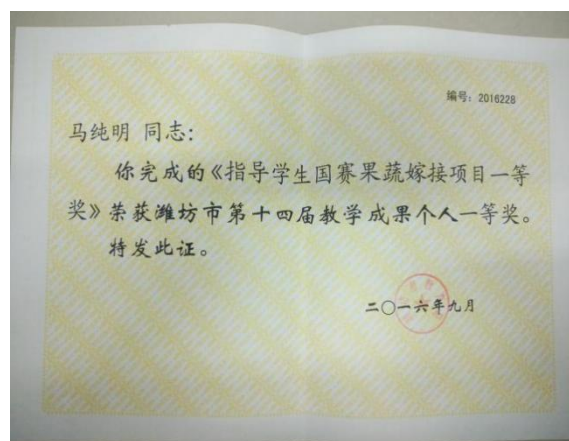 编号：2016228
马纯明 同志：
你完成的《指导学生国赛果蔬嫁接项目一等
奖》荣获潍坊市第十四届教学成果个人一等奖。
特发此证。
二〇一六年九月